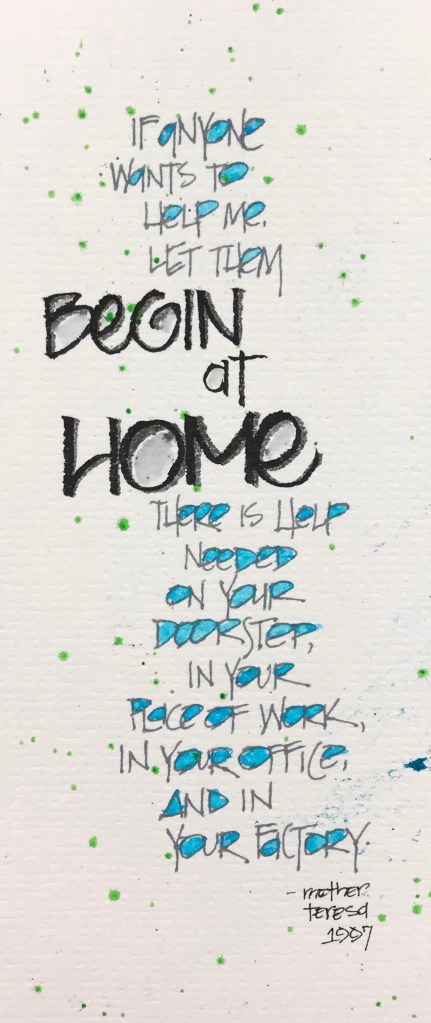 IF ANYONE
WANTS TO
HELP ME.
LET THEM
BEGIN
at
HOME
THERE IS HELP
NEEDED
ON YOUR
DOORSTEP,
IN YOUR
PLACE OF WORK,
IN YOUR OFFICE,
AND IN
YOUR FACTORY.
- mother
teresa
1997